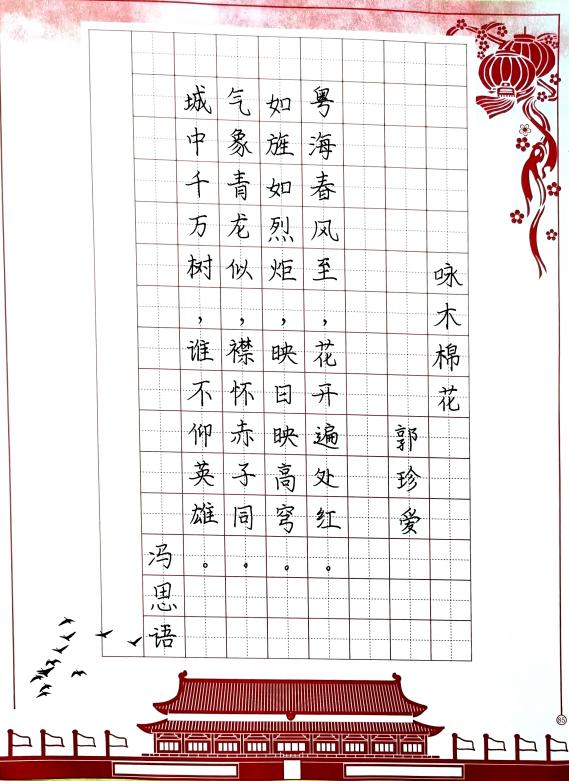 咏木棉花
郭珍爱
粤海春风至，花开遍处红。
如旌如烈炬，映日映高穹。
气象青龙似，襟怀赤子同。
城中千万树，谁不仰英雄。
冯思语
85